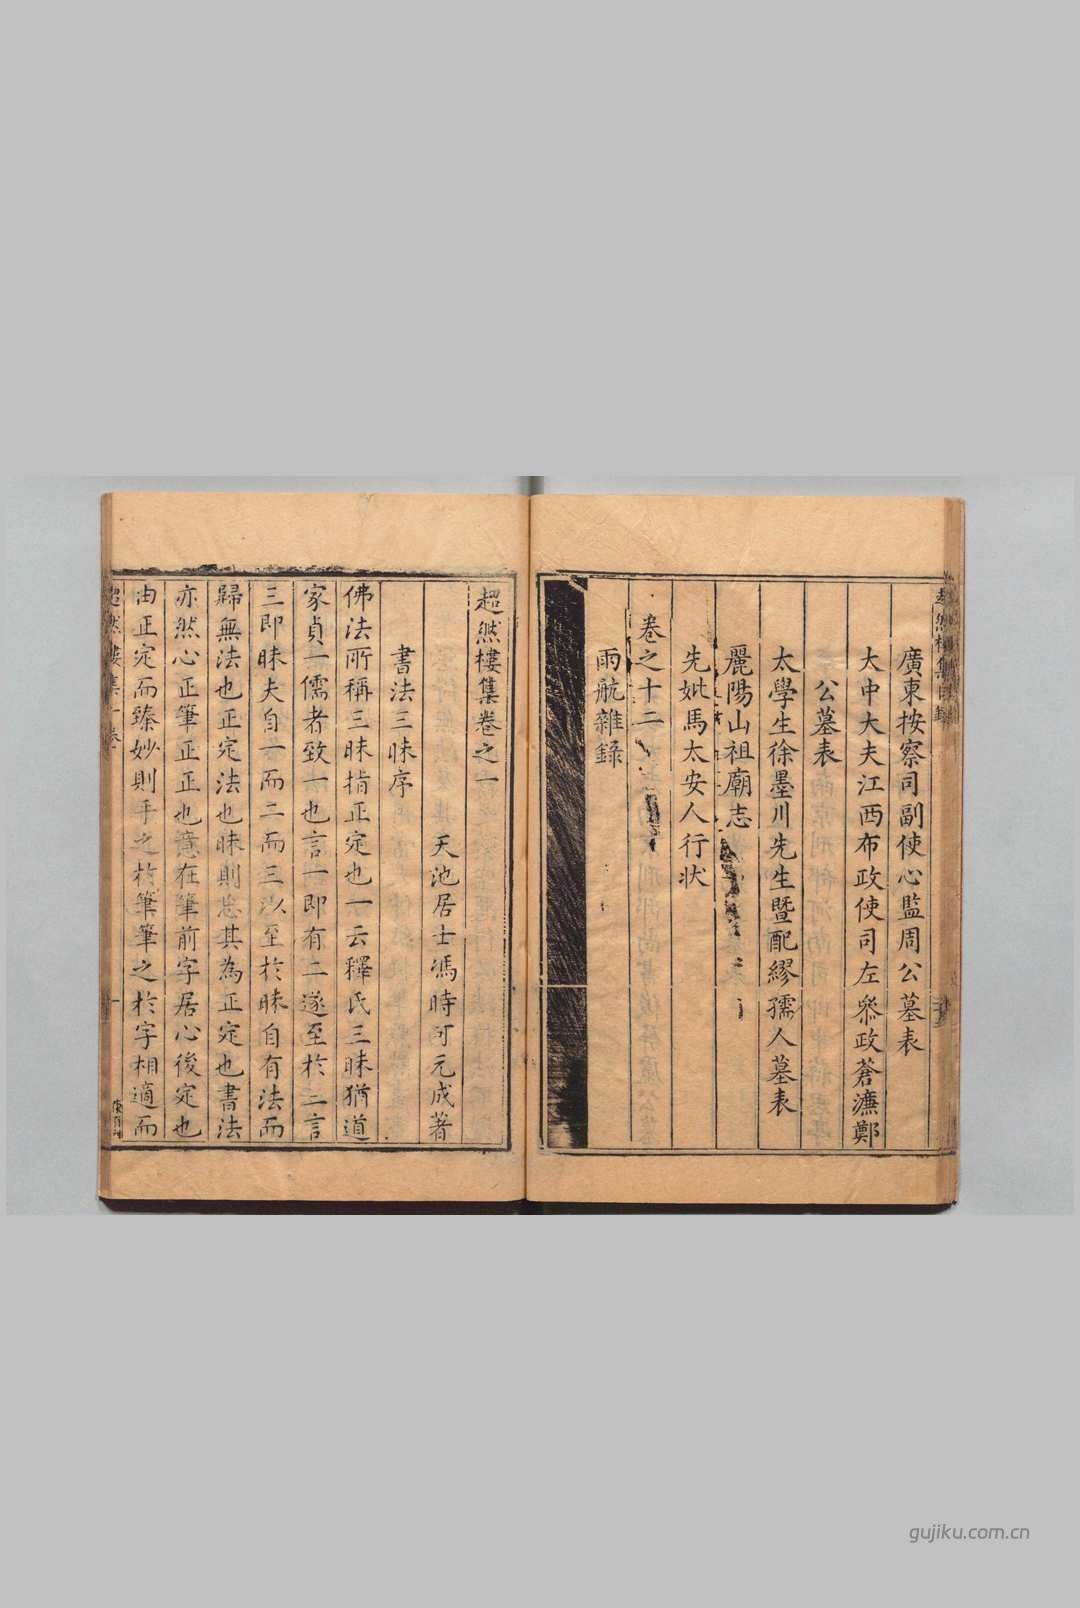 廣東按察司副使心監周公墓表
大中大夫江西布政使司左叅政蒼濂鄭
公墓表
太學生徐墨川先生暨配繆孺人墓表
麗陽山祖廟志
先妣馬太安人行状
卷之十二
雨航雜録
超然樓集卷之一
天池居士馮時可元成著
書法三昧序
佛法所稱三昧指正定也一云釋氏三昧猶道
家貞一儒者致一也言一即有二遂至於三言
三即昧夫自一而二而三以至於昧自有法而
歸無法也正定法也昧則忘其為正定也書法
亦然心正筆正正也意在筆前字居心後定也
由正定而臻妙則手之於筆筆之於字相適而
超然樓集
gujiku.com.cn